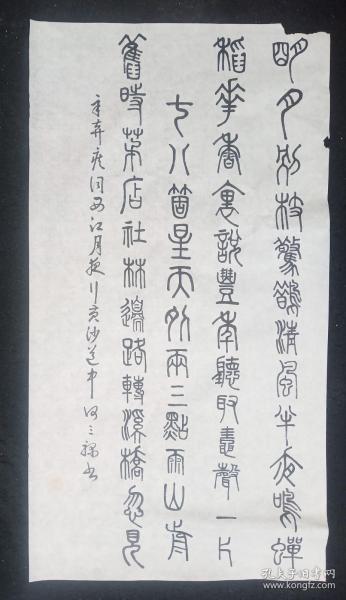 明月別枝驚鵲清風半夜鳴蟬
稻華香裏說豐年聽取鼃聲一片
七八箇星天外兩三點雨山前
舊時茅店社林邊路轉溪橋忽見
辛弃疾词西江月夜行黄沙道中 书
孔夫子旧书网